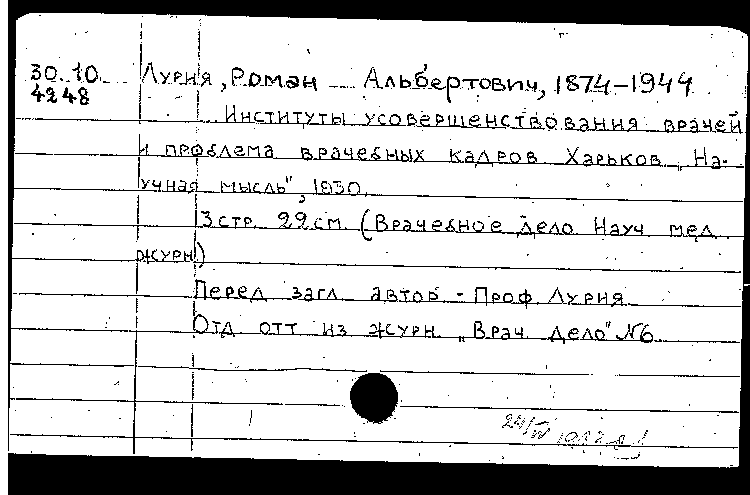 30.10
4248
Лурия, Роман Альбертович, 1874–1944
Институты усовершенствования врачей
и проблема врачебных кадров Харьков „На-
учная мысль", 1930.
3 стр. 22 см. (Врачебное дело Науч. мед.
журн.)
Перед загл. автор - Проф. Лурия
Отд. отт из журн. „Врач. дело" №6.
24/IV